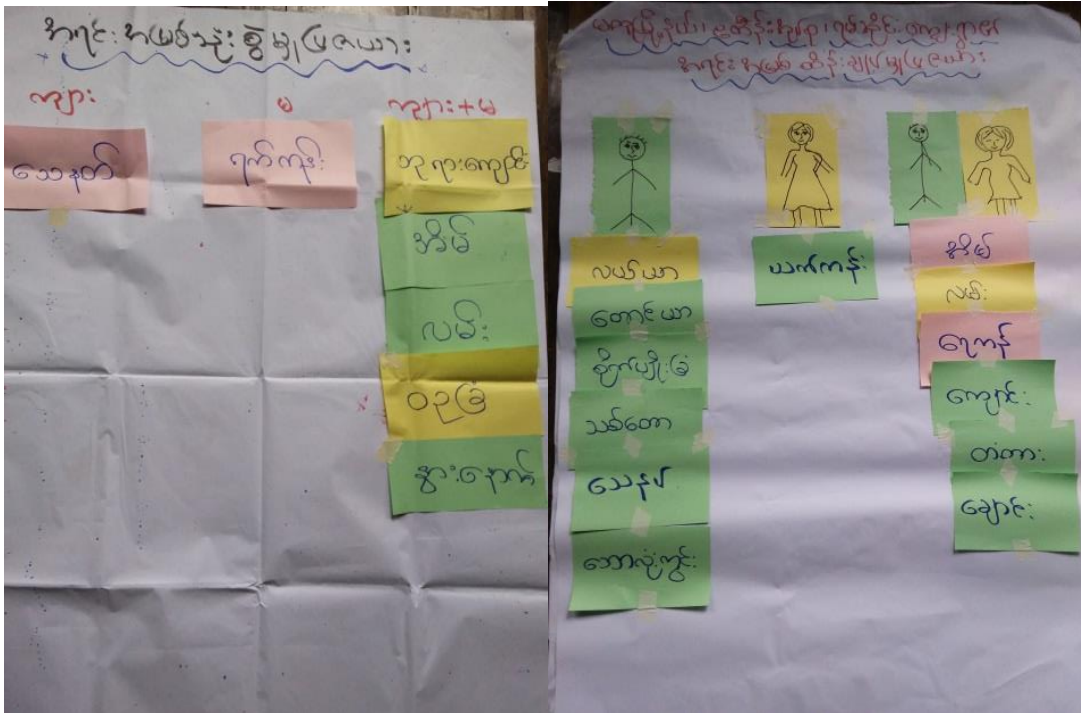 အရင်းအမြစ်သုံးစွဲမှုပြဇယား
ကျား
မ
ကျား+မ
သေနတ်
ရက်ကန်း
ဘုရားကျောင်း
အိမ်
လမ်း
ဝဉခြံ
နွားနောက်
အရင်းအမြစ်ထိန်းချုပ်မှုပြဇယား
လယ်ယာ
တောင်ယာ
စိုက်ပျိုးခြံ
သစ်တော
သေနပ်
ဘောလုံးကွင်း
ယက်ကန်း
အိမ်
လမ်း
ရေကန်
ကျောင်း
တံတား
ချောင်း